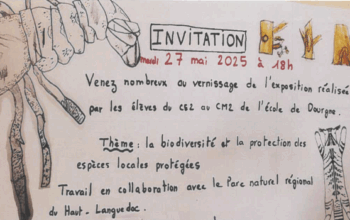 INVITATION
mardi 27 mai 2025 à 18h
Venez nombreux au vernissage de l'exposition réalisée
par les élèves du CE2 au CM2 de l'école de Dourgne.
Thème : la biodiversité et la protection des
espèces locales protégées
Travail en collaboration avec le Parc naturel régional
du Haut-Languedoc.